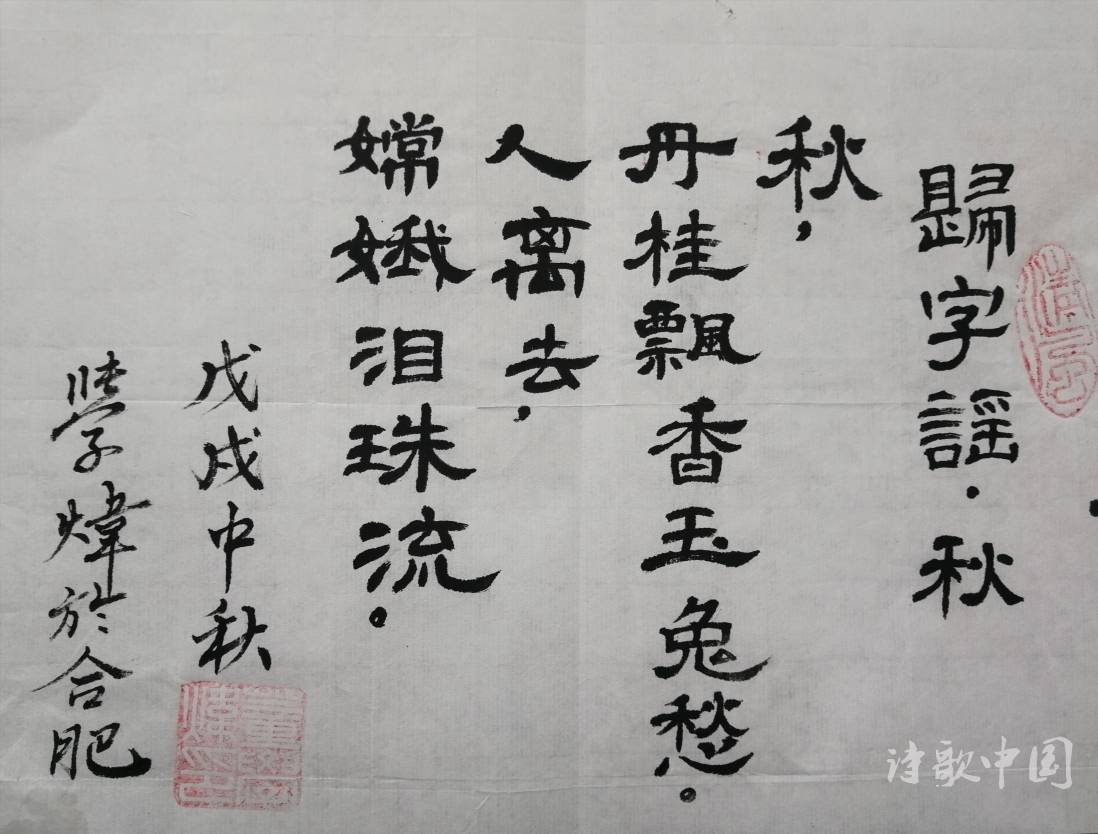 歸字謡·秋
秋，
丹桂飄香玉兔愁。
人离去，
嫦娥泪珠流。
戊戌中秋
學煒於合肥
诗歌中国